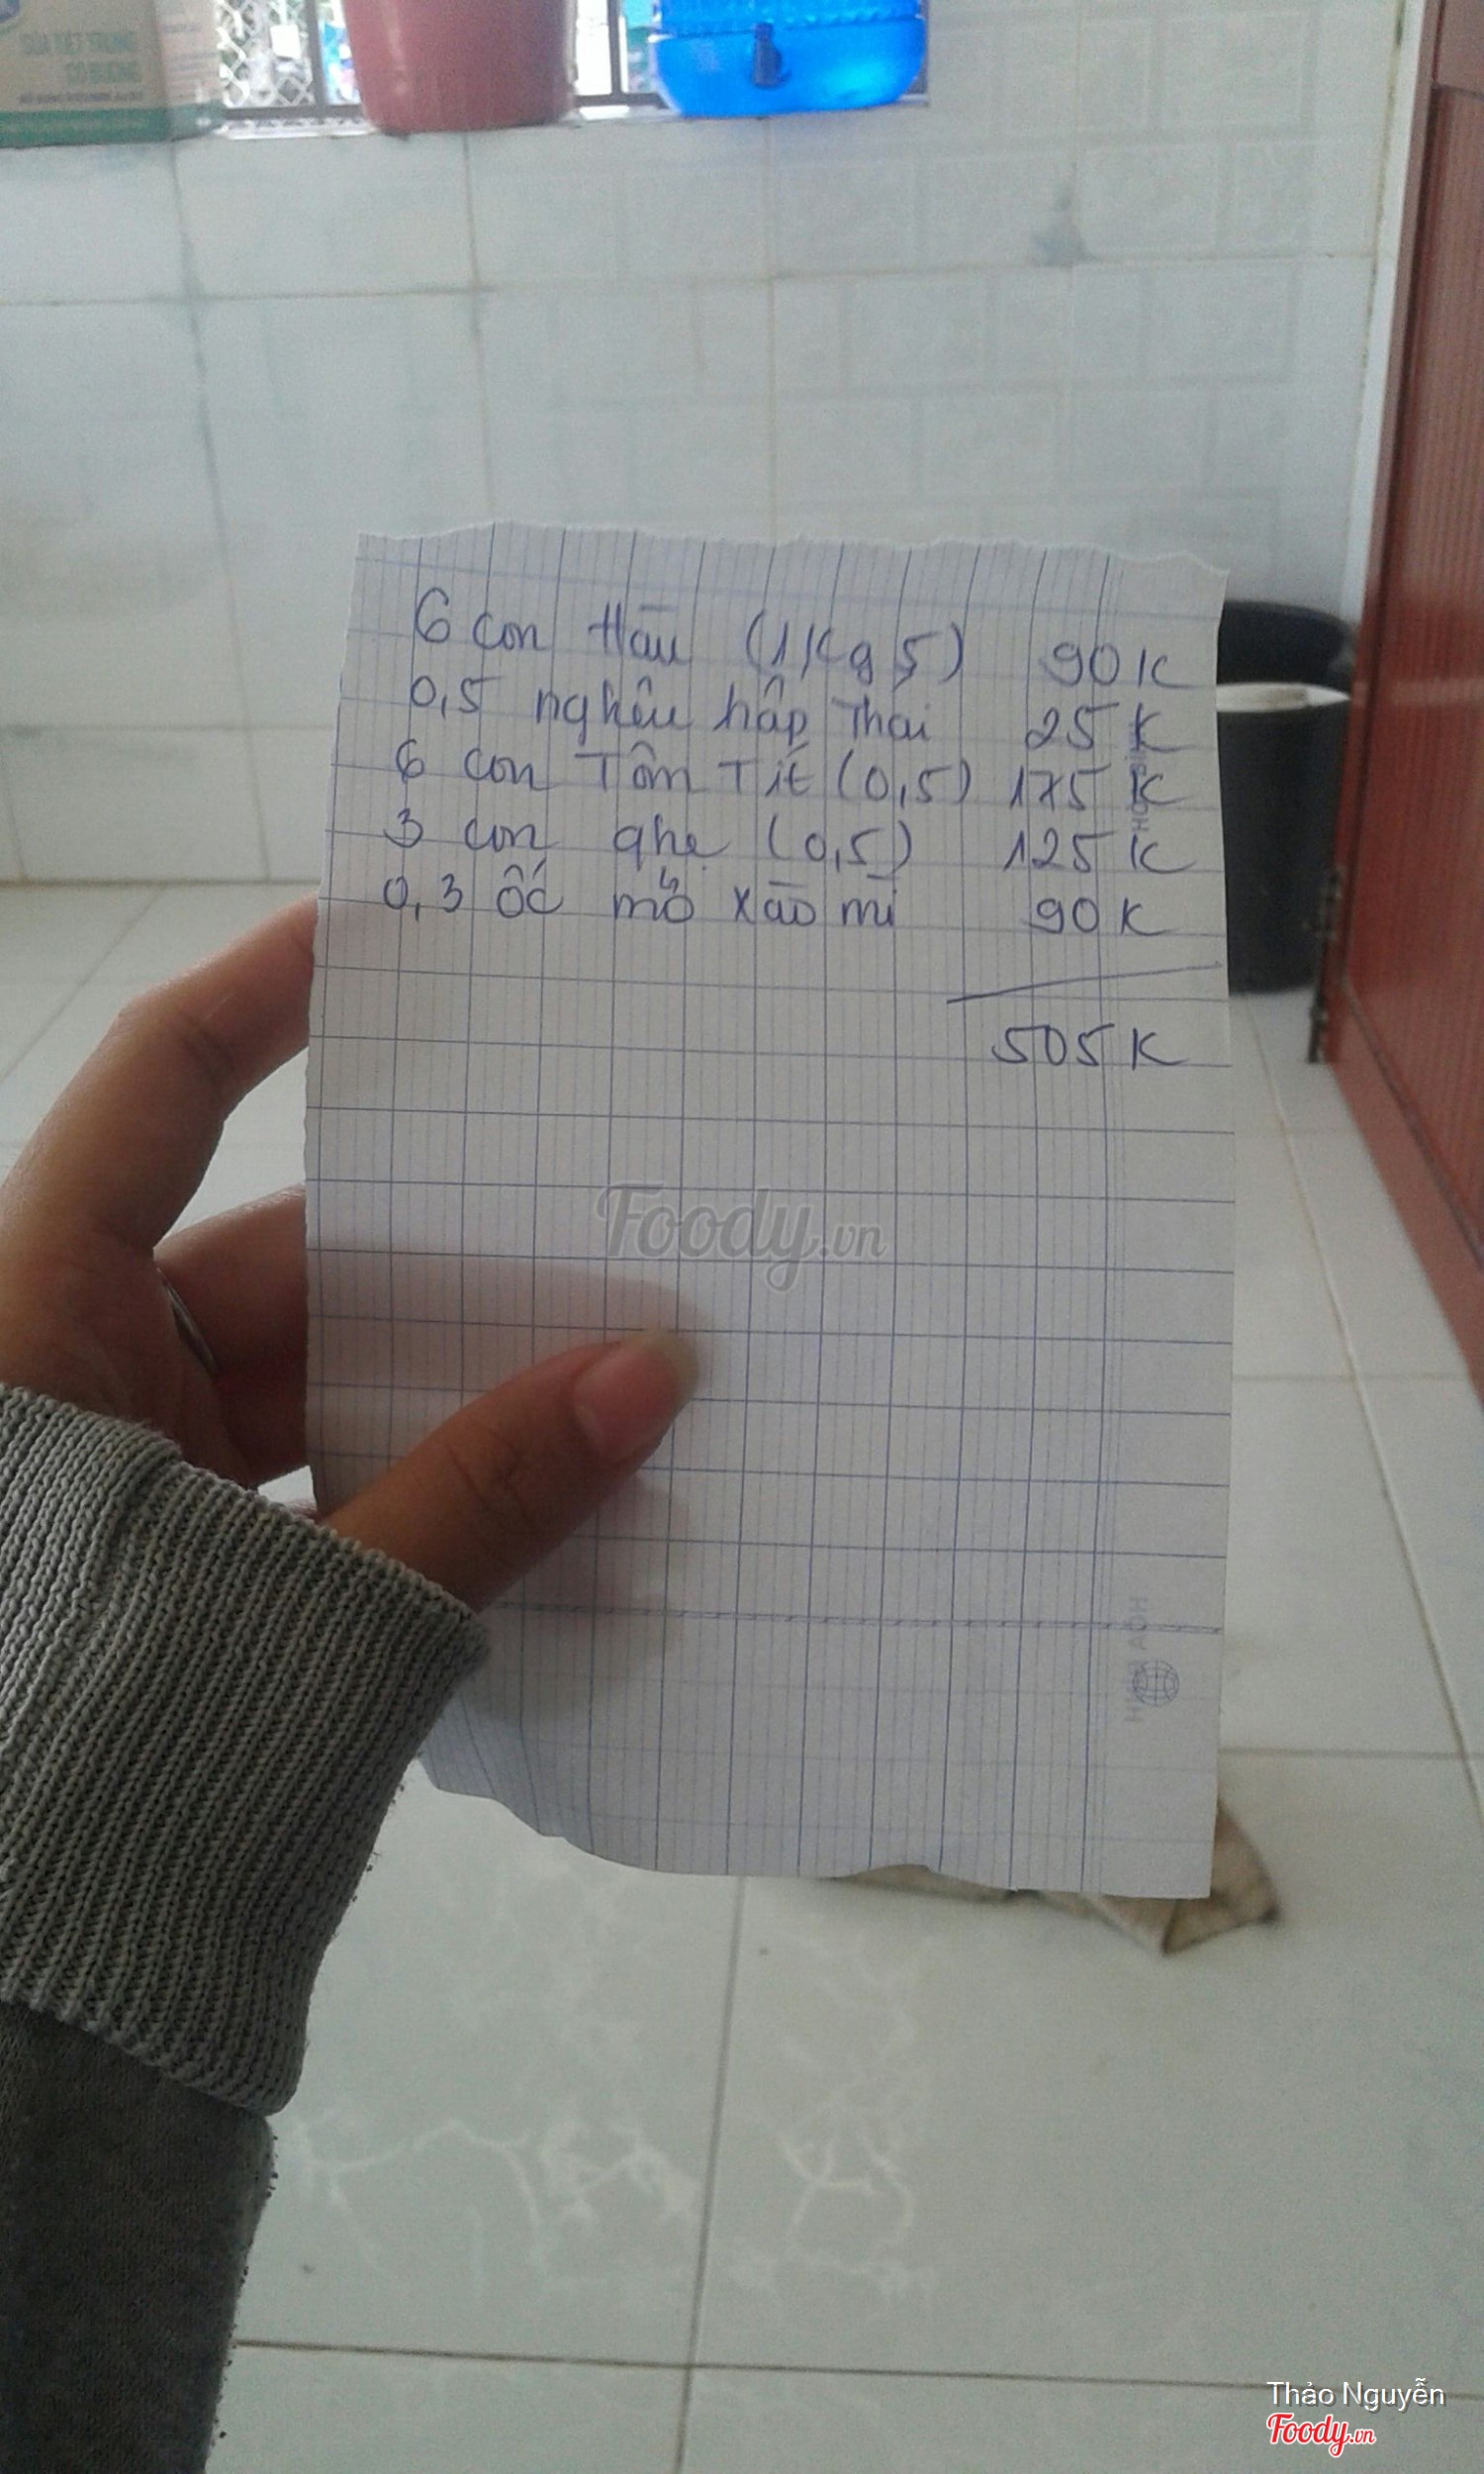 SỮA TIỆT TRÙNG
CÓ ĐƯỜNG
6 con Hàu (1Kg5) 90K
0,5 nghêu hấp Thái 25K
6 con Tôm Tít (0,5) 175K
3 con ghẹ (0,5) 125K
0,3 ốc mỡ xào mì 90K
505K
Foody.vn
HOA BINH
Thảo Nguyễn
Foody.vn